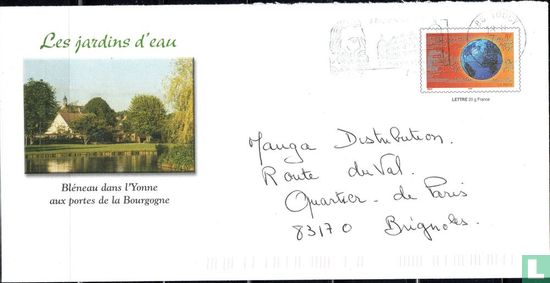 Les jardins d'eau
LETTRE 20 g France
Bléneau dans l'Yonne
aux portes de la Bourgogne
Manga Distribution.
Route du Val.
Quartier de Paris
83170 Brignoles.
catawiki